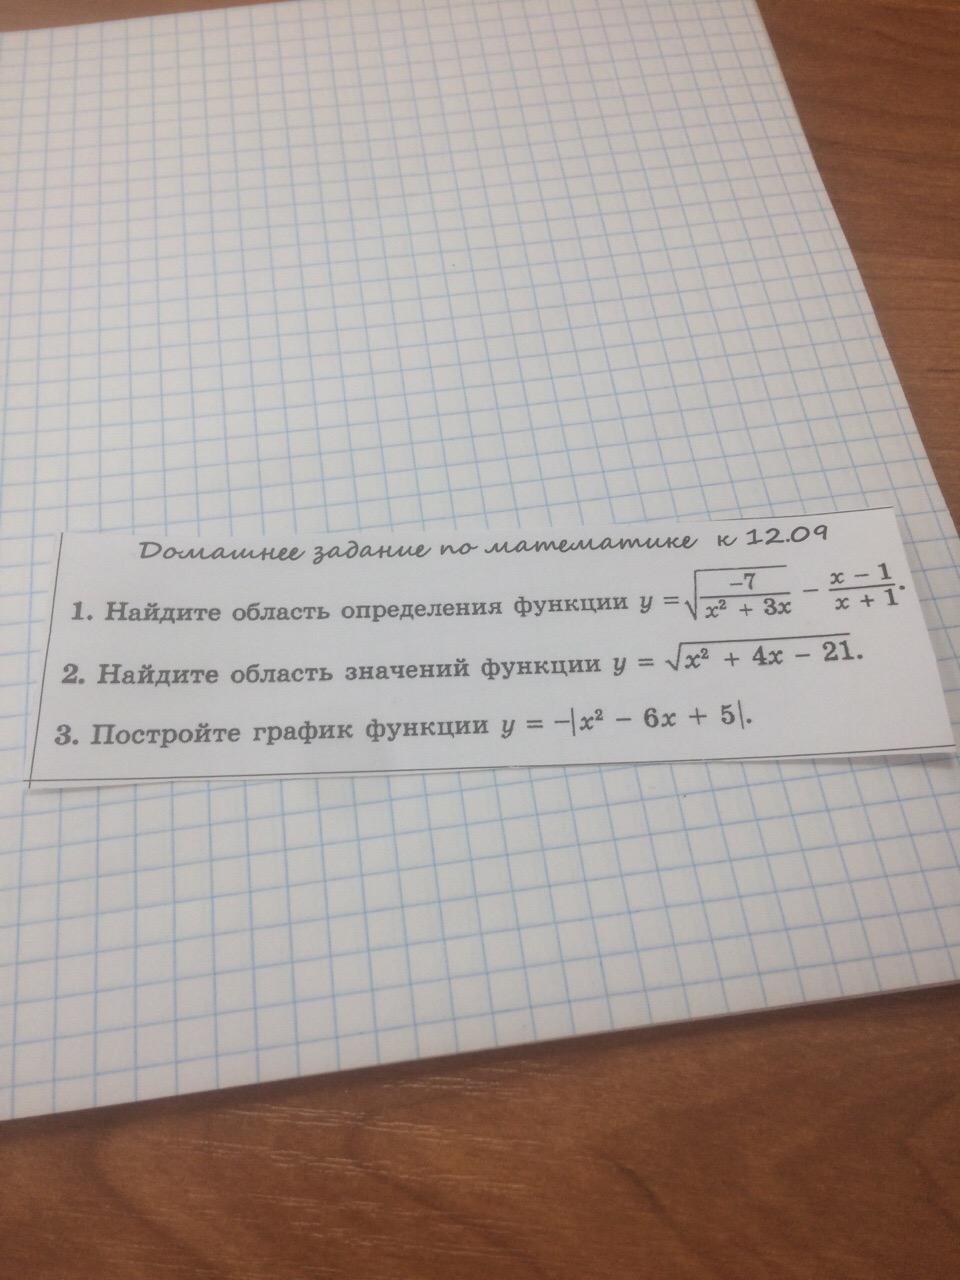 Домашнее задание по математике к 12.09
1. Найдите область определения функции y = √(-7/(x² + 3x)) − (x − 1)/(x + 1).
2. Найдите область значений функции y = √(x² + 4x − 21).
3. Постройте график функции y = −|x² − 6x + 5|.